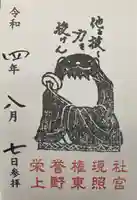 社宮
現照
権東
誉野
栄上
他を抜く
力を
授けん
令和四年八月七日参拝